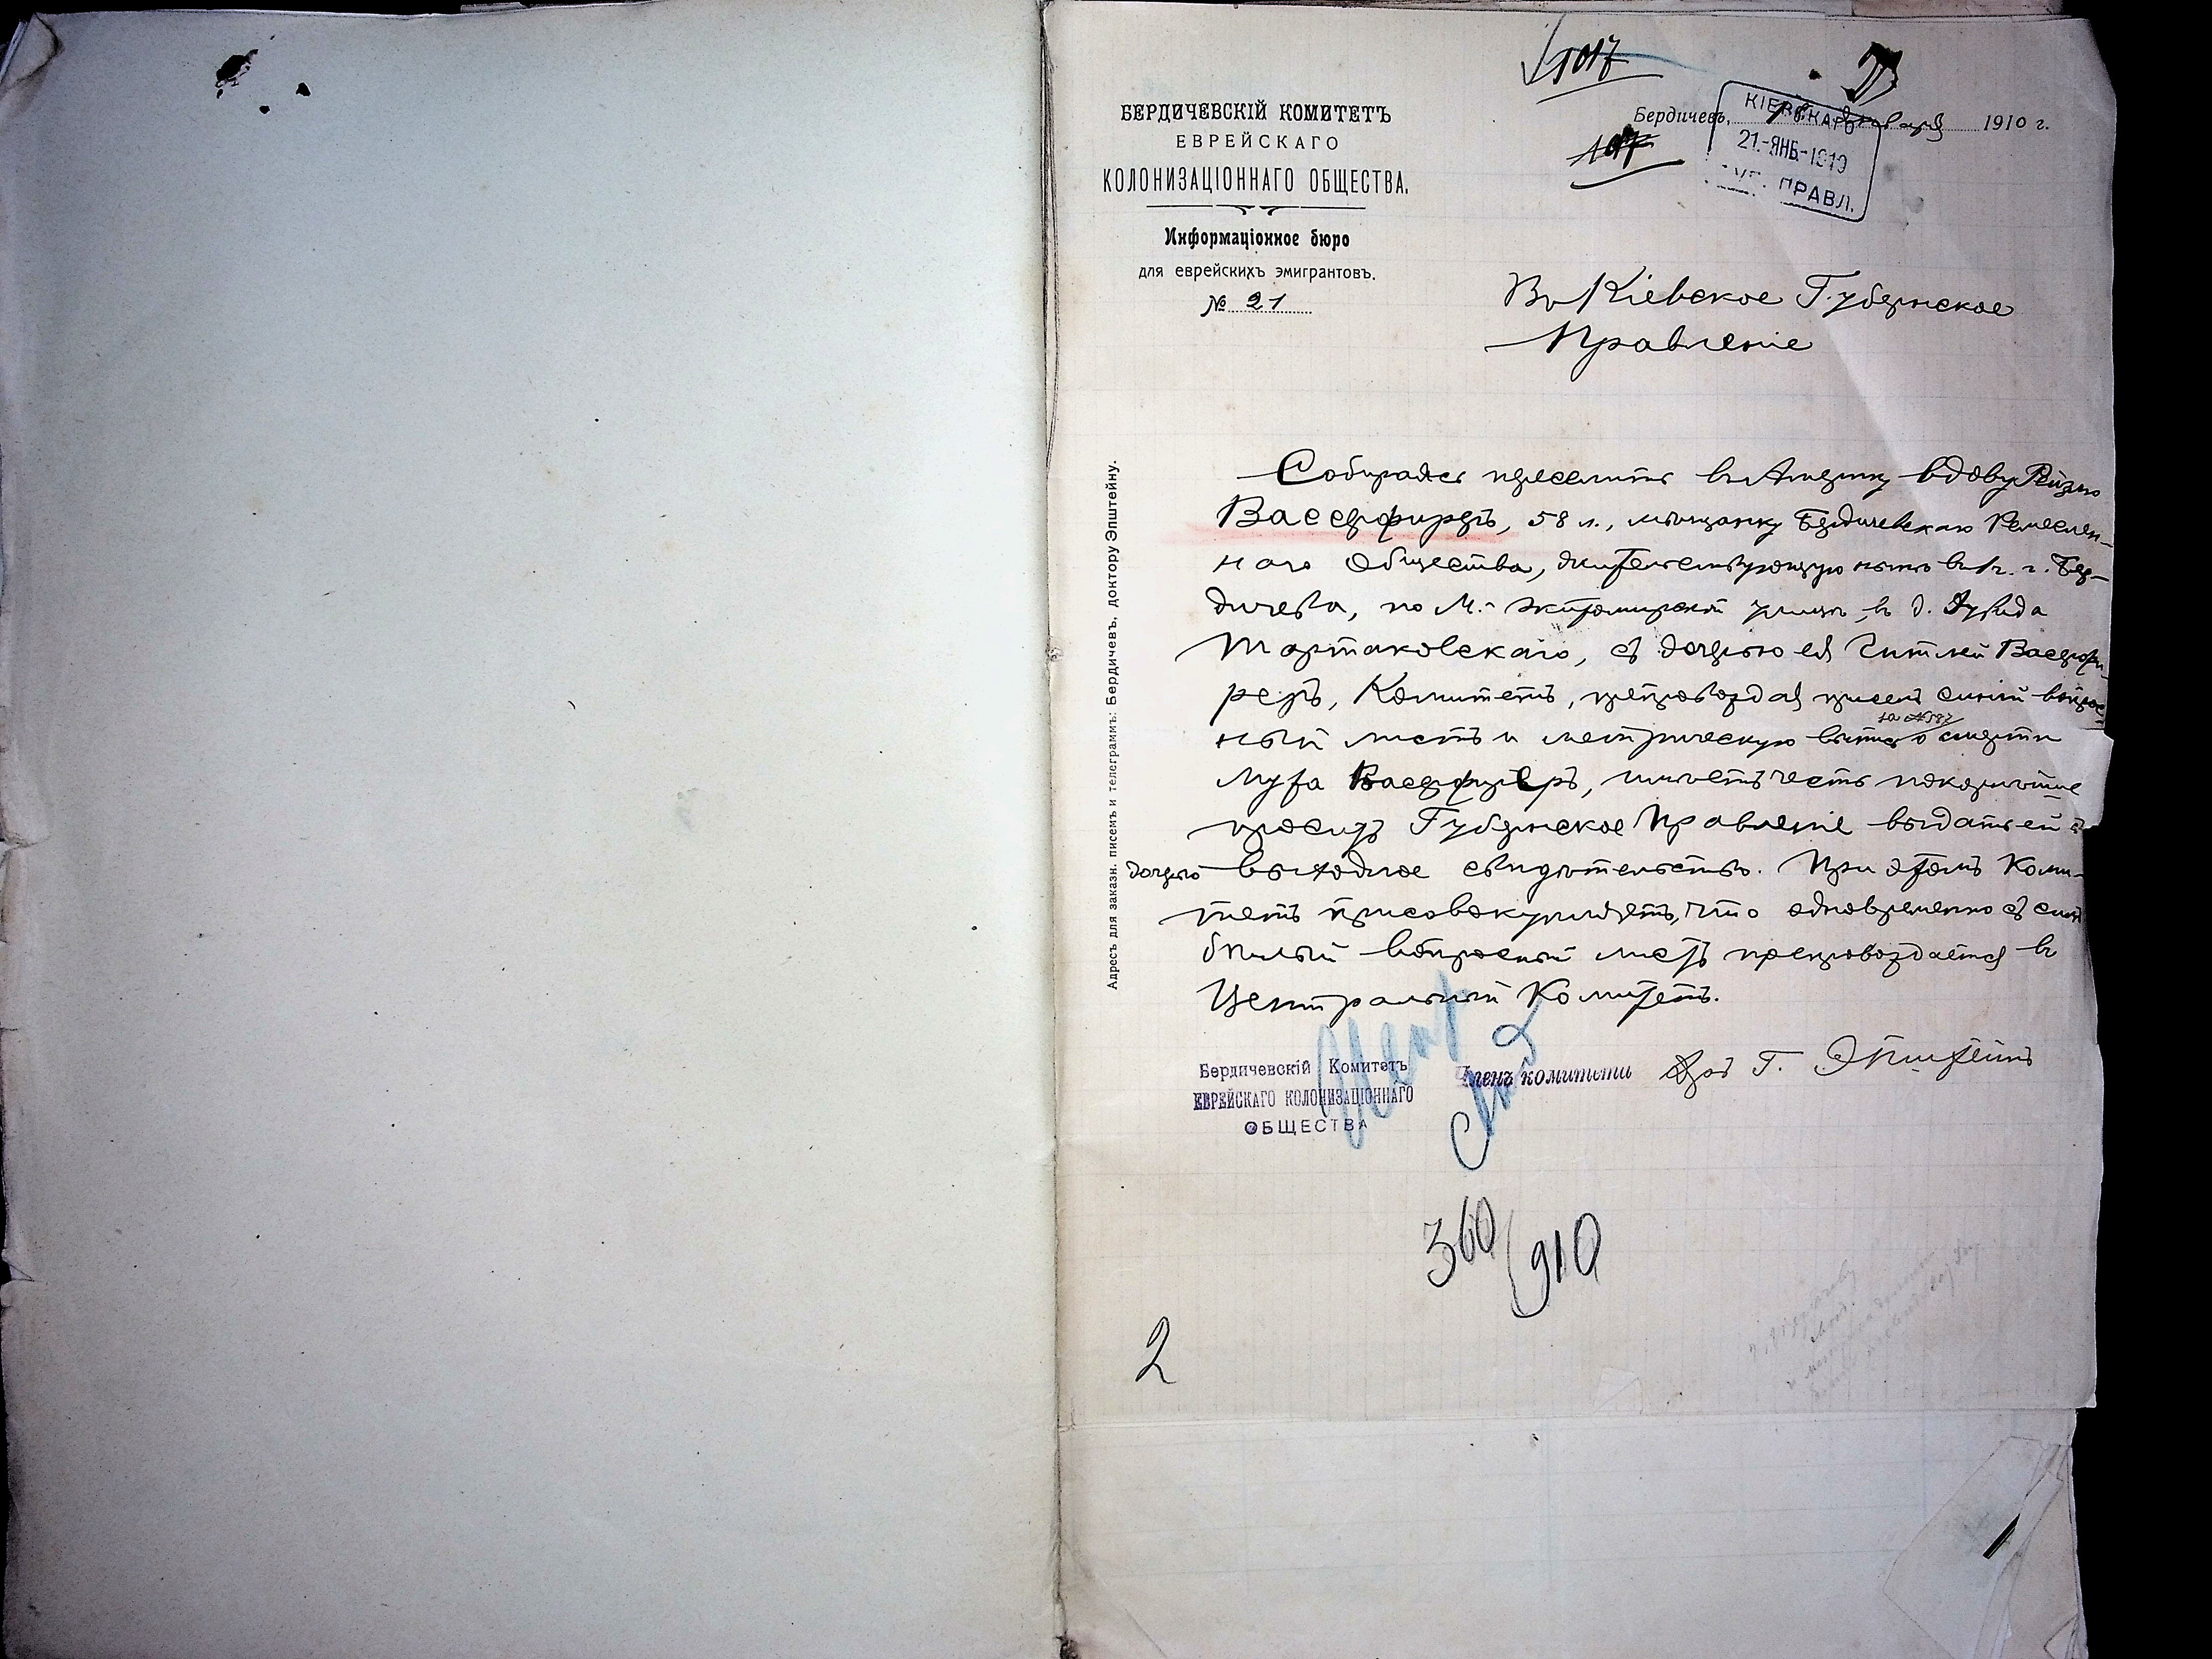 1017
БЕРДИЧЕВСКІЙ КОМИТЕТЪ
ЕВРЕЙСКАГО
КОЛОНИЗАЦІОННАГО ОБЩЕСТВА.
Информаціонное бюро
для еврейскихъ эмигрантовъ.
№ 21
Бердичевъ, января 1910 г.
107
КІЕВСКАГО
21.-ЯНБ-1910
ПРАВЛ.
Въ Кіевское Губернское
Правленіе
Адресъ для заказн. писемъ и телеграммъ: Бердичевъ, доктору Эпштейну.
Собираясь переселить въ Америку вдову Рейзю
Вассерфиреръ, 58 л., мѣщанку Бердичевскаго Ремеслен-
наго Общества, жительствующую нынѣ въ г. Бер-
дичевѣ, по М.- Житомирской улицѣ, въ д. Дувида
Тартаковскаго, съ дочерью ея Гитлей Вассерфи-
реръ, Комитетъ, препровождая при семъ синій вопрос-
ный листъ и метрическую выпись за № о смерти
мужа Вассерфиреръ, имѣетъ честь покорнѣйше
просить Губернское Правленіе выдать ей съ
дочерью выходное свидѣтельство. При этомъ Коми-
тетъ присовокупляетъ, что одновременно съ симъ
бѣлый вопросный листъ препровождается въ
Центральный Комитетъ.
Бердичевскій Комитетъ
ЕВРЕЙСКАГО КОЛОНИЗАЦІОННАГО
ОБЩЕСТВА
Членъ комитета Д-ръ Г. Эпштейнъ
360/910
2